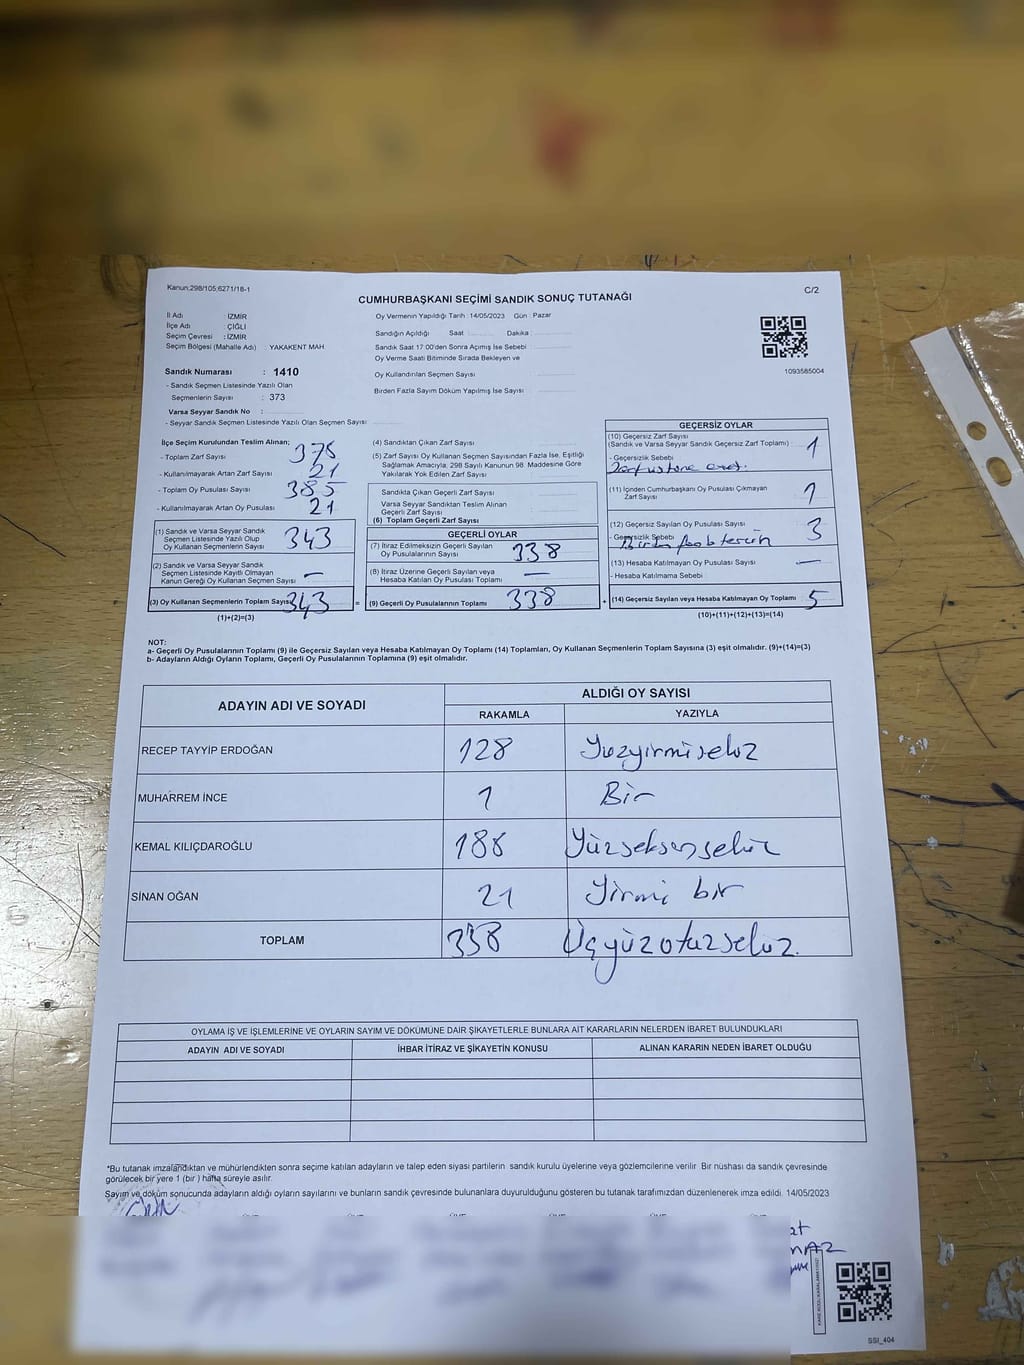 Kanun;298/105;6271/18-1
C/2
CUMHURBAŞKANI SEÇİMİ SANDIK SONUÇ TUTANAĞI
İl Adı : İZMİR
İlçe Adı : ÇİĞLİ
Seçim Çevresi : İZMİR
Seçim Bölgesi (Mahalle Adı) : YAKAKENT MAH
Sandık Numarası : 1410
- Sandık Seçmen Listesinde Yazılı Olan
Seçmenlerin Sayısı : 373
Varsa Seyyar Sandık No :
- Seyyar Sandık Seçmen Listesinde Yazılı Olan Seçmen Sayısı
Oy Vermenin Yapıldığı Tarih : 14/05/2023 Gün : Pazar
Sandığın Açıldığı Saat Dakika
Sandık Saat 17:00'den Sonra Açımış İse Sebebi
Oy Verme Saati Bitiminde Sırada Bekleyen ve
Oy Kullandırılan Seçmen Sayısı
Birden Fazla Sayım Döküm Yapılmış İse Sayısı
1093585004
İlçe Seçim Kurulundan Teslim Alınan;
- Toplam Zarf Sayısı 375
- Kullanılmayarak Artan Zarf Sayısı 21
- Toplam Oy Pusulası Sayısı 385
- Kullanılmayarak Artan Oy Pusulası 21
(1) Sandık ve Varsa Seyyar Sandık
Seçmen Listesinde Yazılı Olup
Oy Kullanan Seçmenlerin Sayısı 343
(2) Sandık ve Varsa Seyyar Sandık
Seçmen Listesinde Kayıtlı Olmayan
Kanun Gereği Oy Kullanan Seçmen Sayısı —
(3) Oy Kullanan Seçmenlerin Toplam Sayısı 343
(1)+(2)=(3)
=
(4) Sandıktan Çıkan Zarf Sayısı
(5) Zarf Sayısı Oy Kullanan Seçmen Sayısından Fazla İse, Eşitliği
Sağlamak Amacıyla, 298 Sayılı Kanunun 98. Maddesine Göre
Yakılarak Yok Edilen Zarf Sayısı
Sandıkta Çıkan Geçerli Zarf Sayısı
Varsa Seyyar Sandıktan Teslim Alınan
Geçerli Zarf Sayısı
(6) Toplam Geçerli Zarf Sayısı
GEÇERLİ OYLAR
(7) İtiraz Edilmeksizin Geçerli Sayılan
Oy Pusulalarının Sayısı 338
(8) İtiraz Üzerine Geçerli Sayılan veya
Hesaba Katılan Oy Pusulası Toplamı —
(9) Geçerli Oy Pusulalarının Toplamı 338
+
GEÇERSİZ OYLAR
(10) Geçersiz Zarf Sayısı
(Sandık ve Varsa Seyyar Sandık Geçersiz Zarf Toplamı) 1
- Geçersizlik Sebebi
(11) İçinden Cumhurbaşkanı Oy Pusulası Çıkmayan
Zarf Sayısı 1
(12) Geçersiz Sayılan Oy Pusulası Sayısı 3
- Geçersizlik Sebebi
(13) Hesaba Katılmayan Oy Pusulası Sayısı —
- Hesaba Katılmama Sebebi
(14) Geçersiz Sayılan veya Hesaba Katılmayan Oy Toplamı 5
(10)+(11)+(12)+(13)=(14)
NOT:
a- Geçerli Oy Pusulalarının Toplamı (9) ile Geçersiz Sayılan veya Hesaba Katılmayan Oy Toplamı (14) Toplamları, Oy Kullanan Seçmenlerin Toplam Sayısına (3) eşit olmalıdır. (9)+(14)=(3)
b- Adayların Aldığı Oyların Toplamı, Geçerli Oy Pusulalarının Toplamına (9) eşit olmalıdır.
ADAYIN ADI VE SOYADI ALDIĞI OY SAYISI
RAKAMLA YAZIYLA
RECEP TAYYİP ERDOĞAN 128 Yüzyirmisekiz
MUHARREM İNCE 1 Bir
KEMAL KILIÇDAROĞLU 188 Yüzseksensekiz
SİNAN OĞAN 21 Yirmi bir
TOPLAM 338 Üçyüzotuzsekiz
OYLAMA İŞ VE İŞLEMLERİNE VE OYLARIN SAYIM VE DÖKÜMÜNE DAİR ŞİKAYETLERLE BUNLARA AİT KARARLARIN NELERDEN İBARET BULUNDUKLARI
ADAYIN ADI VE SOYADI İHBAR İTİRAZ VE ŞİKAYETİN KONUSU ALINAN KARARIN NEDEN İBARET OLDUĞU
*Bu tutanak imzalandıktan ve mühürlendikten sonra seçime katılan adayların ve talep eden siyasi partilerin sandık kurulu üyelerine veya gözlemcilerine verilir. Bir nüshası da sandık çevresinde
görülecek bir yere 1 (bir) hafta süreyle asılır.
Sayım ve döküm sonucunda adayların aldığı oyların sayılarını ve bunların sandık çevresinde bulunanlara duyurulduğunu gösteren bu tutanak tarafımızdan düzenlenerek imza edildi. 14/05/2023
SSI_404